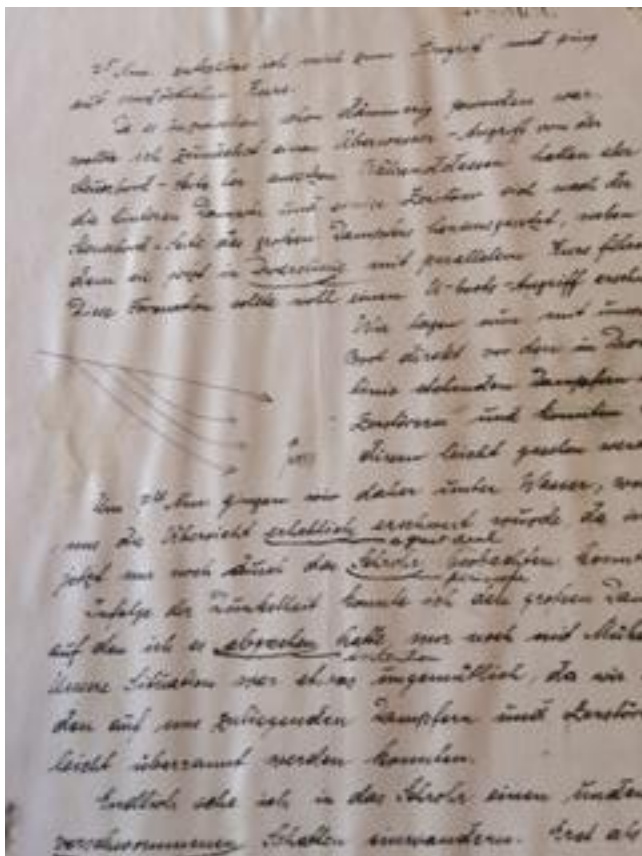 Uhr entschloss ich mich zum Angriff und ging
auf Kurs.
Da es inzwischen schon dämmerig geworden war
wollte ich zunächst einen Überwasser-Angriff von der
Steuerbord-Seite her machen. Währenddessen hatten aber
die hinteren Dampfer und Zerstörer sich nach der
Steuerbord-Seite des großen Dampfers herausgesetzt, neben
dem sie jetzt in mit parallelem Kurs
Diese Formation sollte wohl einen U-boots-Angriff
Wir lagen nun mit
Boot direkt vor den in
linie stehenden Dampfern
Zerstörern und konnten
diesen leicht gesehen
Um Uhr gingen wir daher unter Wasser,
uns die Übersicht erheblich erschwert wurde, da
a great deal
jetzt nur noch durch das Sehrohr beobachten
periscope
Infolge der Dunkelheit konnte ich den großen
auf den ich es abgesehen hatte nur noch mit
Unsere Situation war etwas ungemütlich, da wir
den auf uns zuliegenden Dampfern und
leicht überrannt werden konnten.
Endlich sehe ich in das Sehrohr einen
verschwommenen Schatten einwandern. Erst